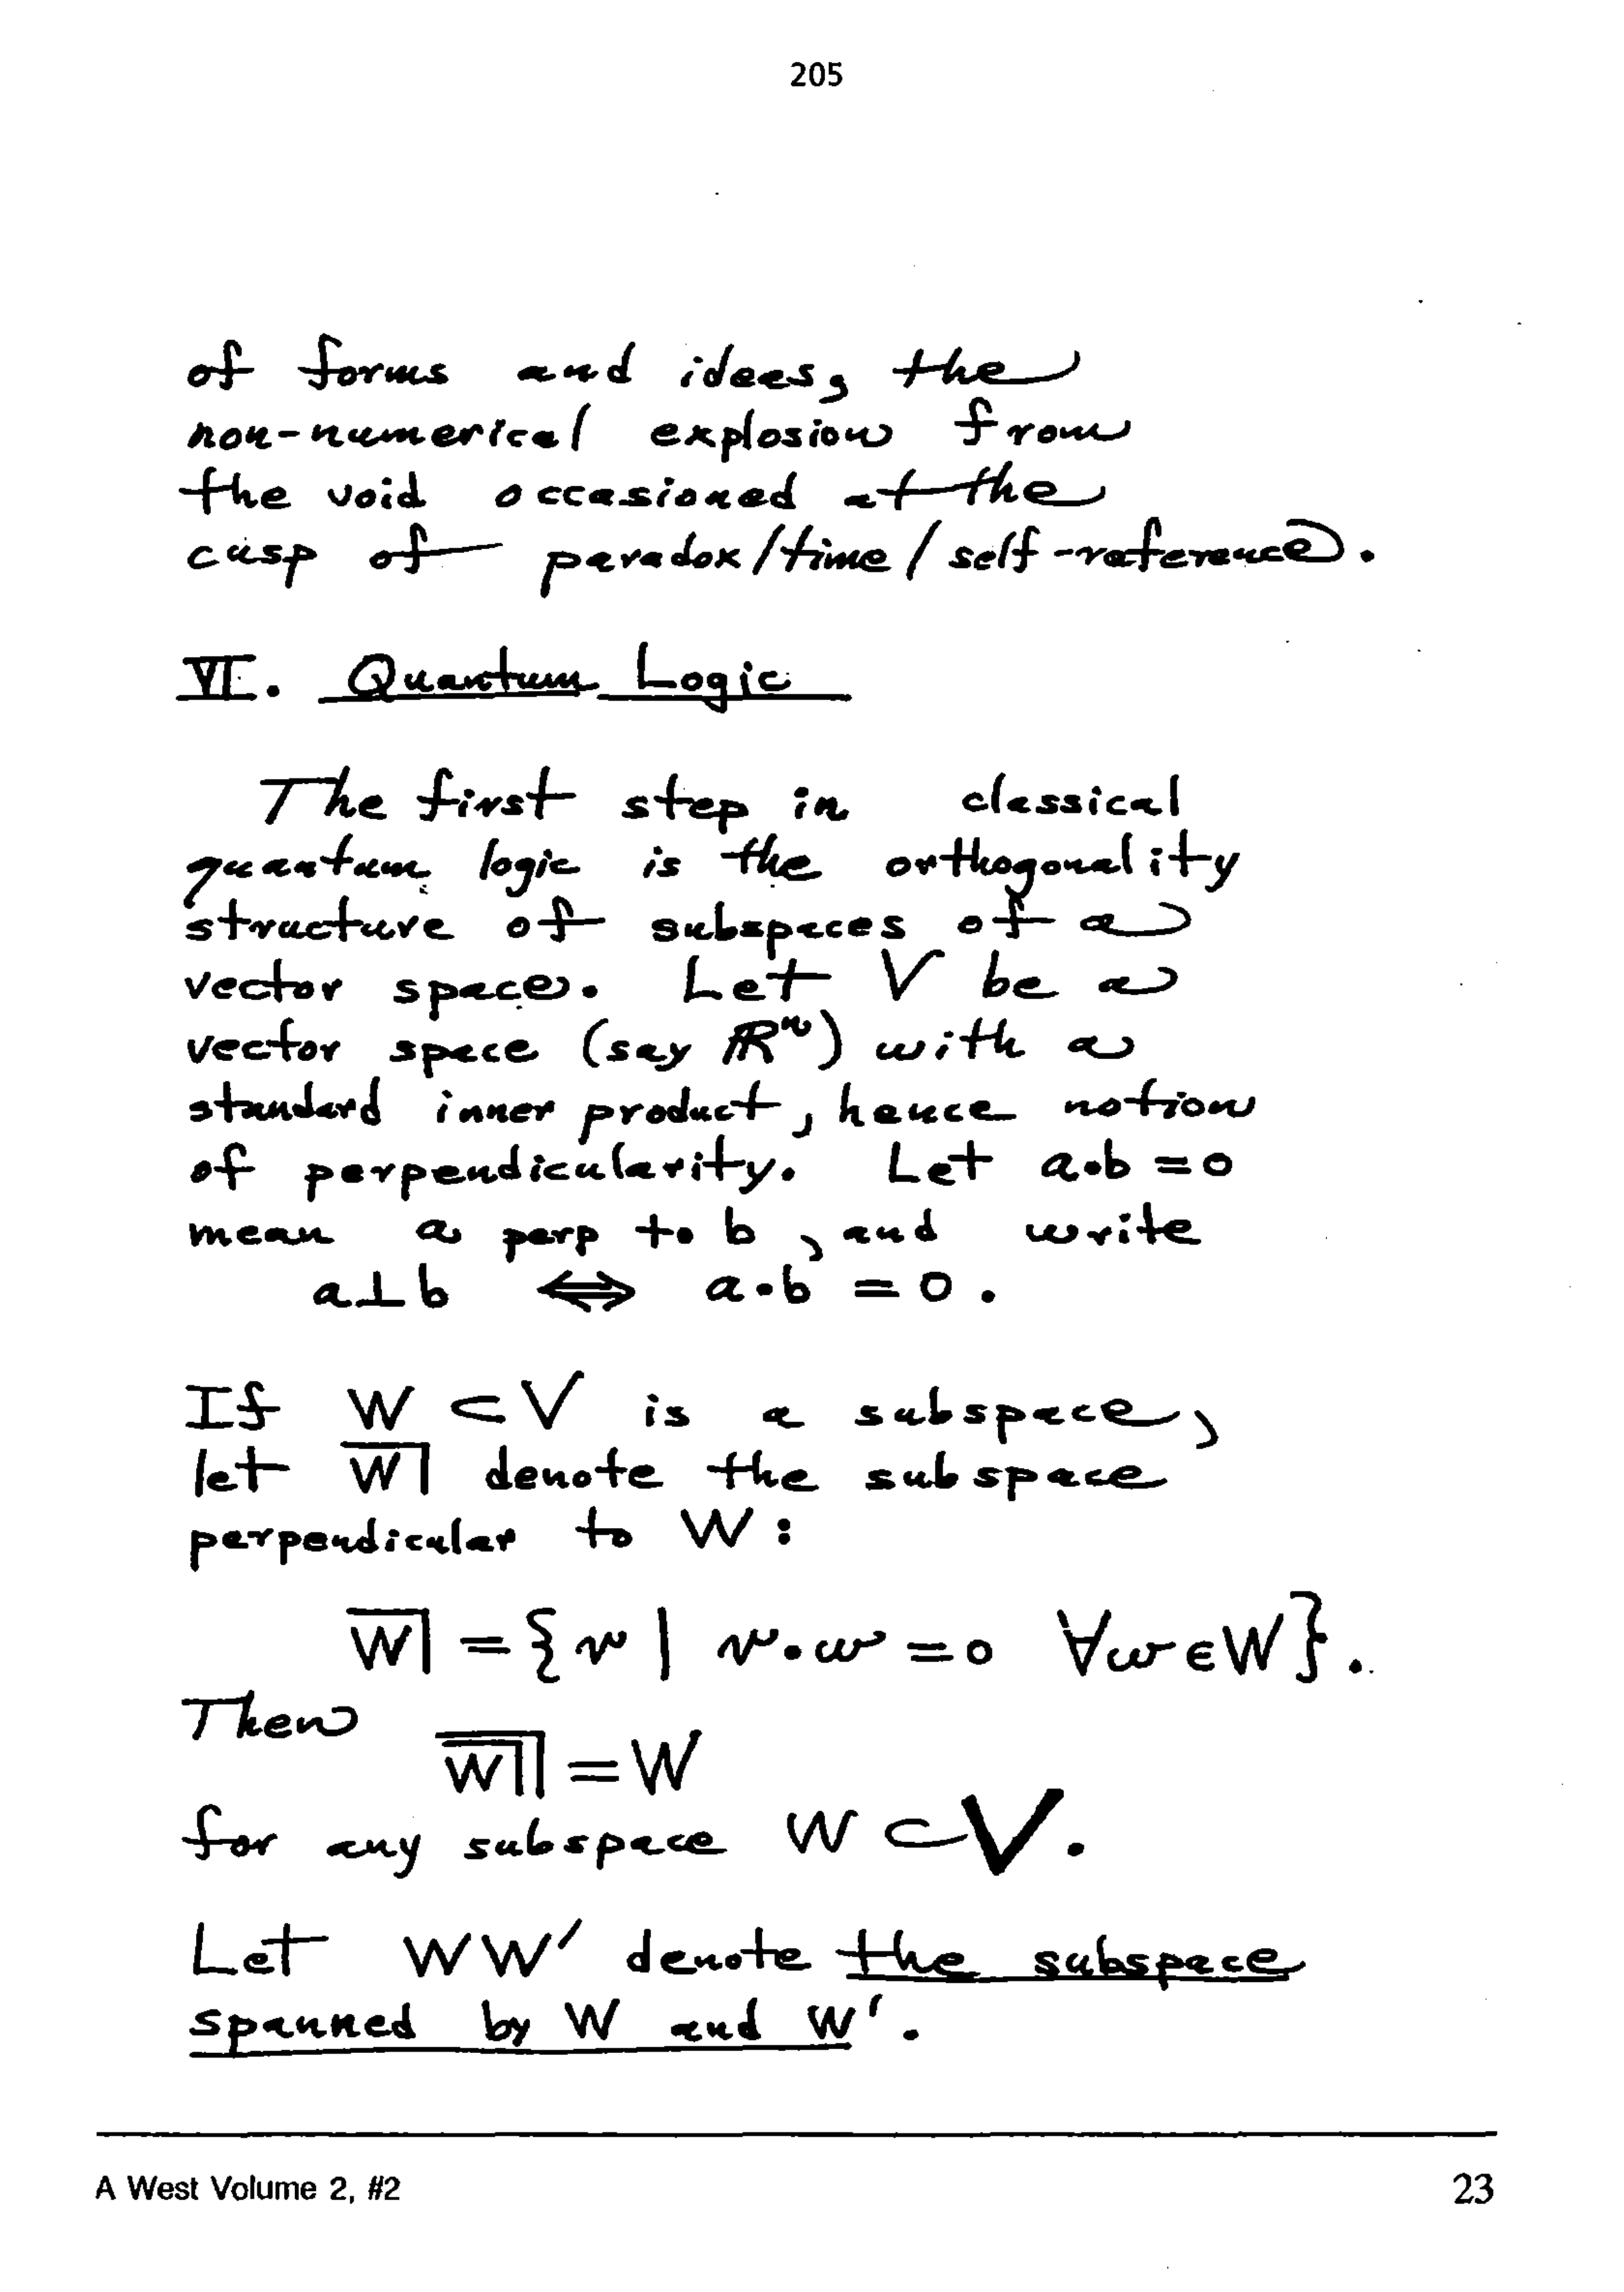 205
of forms and ideas, the
non-numerical explosion from
the void occasioned at the
cusp of paradox/time/self-reference.
VI. Quantum Logic
The first step in classical
quantum logic is the orthogonality
structure of subspaces of a
vector space. Let V be a
vector space (say ℝⁿ) with a
standard inner product, hence notion
of perpendicularity. Let a•b = 0
mean a perp to b, and write
a⊥b ⇔ a•b = 0.
If W ⊂ V is a subspace,
let W̅| denote the subspace
perpendicular to W:
W̅| = {v | v•w = 0 ∀w∈W}.
Then
W̅|̅| = W
for any subspace W ⊂ V.
Let WW′ denote the subspace
spanned by W and W′.
A West Volume 2, #2
23